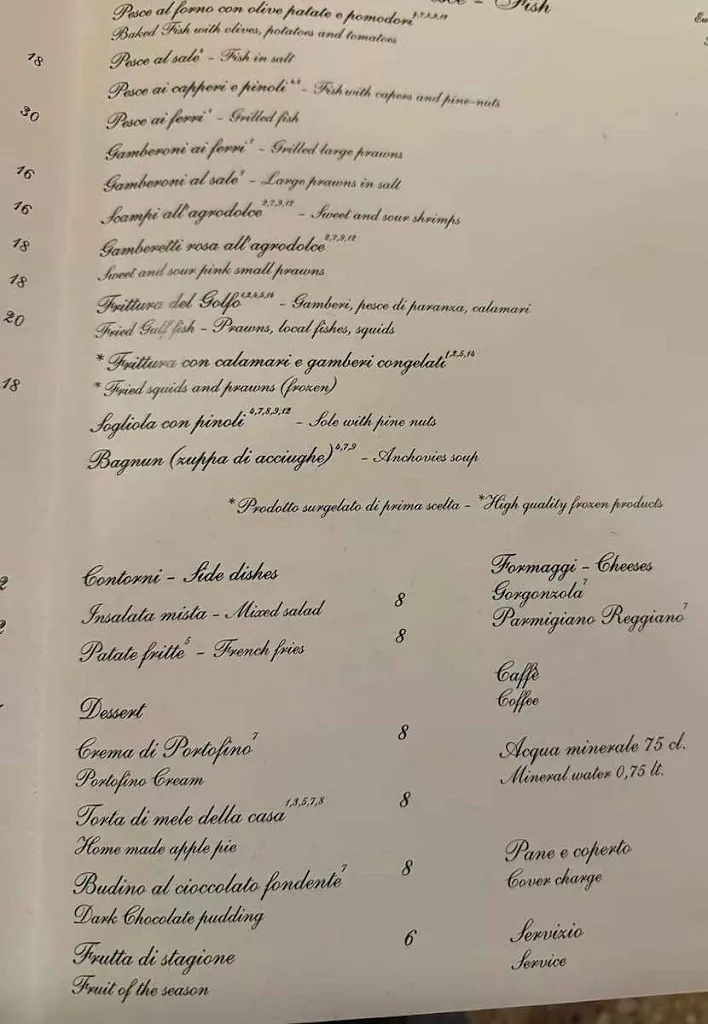 Fish
Pesce al forno con olive patate e pomodori
Baked Fish with olives, potatoes and tomatoes
18
Pesce al sale⁴ - Fish in salt
Pesce ai capperi e pinoli - Fish with capers and pine-nuts
30
Pesce ai ferri - Grilled fish
Gamberoni ai ferri² - Grilled large prawns
16
Gamberoni al sale² - Large prawns in salt
16
Scampi all'agrodolce 2,7,9,12 - Sweet and sour shrimps
18
Gamberetti rosa all'agrodolce 2,7,9,12
Sweet and sour pink small prawns
18
Frittura del Golfo 1,2,4,5,14 - Gamberi, pesce di paranza, calamari
20
Fried Gulf fish - Prawns, local fishes, squids
* Frittura con calamari e gamberi congelati 1,2,5,14
18
* Fried squids and prawns (frozen)
Sogliola con pinoli 4,7,8,9,12 - Sole with pine nuts
Bagnun (zuppa di acciughe) 4,7,9 - Anchovies soup
* Prodotto surgelato di prima scelta - *High quality frozen products
Contorni - Side dishes
Insalata mista - Mixed salad 8
Patate fritte⁵ - French fries 8
Dessert
Crema di Portofino⁷ 8
Portofino Cream
Torta di mele della casa 1,3,5,7,8 8
Home made apple pie
Budino al cioccolato fondente⁷ 8
Dark Chocolate pudding
Frutta di stagione 6
Fruit of the season
Formaggi - Cheeses
Gorgonzola⁷
Parmigiano Reggiano⁷
Caffè
Coffee
Acqua minerale 75 cl.
Mineral water 0,75 lt.
Pane e coperto
Cover charge
Servizio
Service